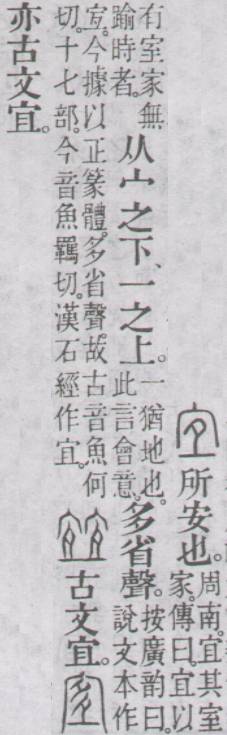 所安也。
周南。宜其室
家。傳曰。宜以
有室家無
踰時者。
从宀之下、一之上。
一猶地也。
此言會意。
多省聲。
按廣韵曰。
說文本作
宐。今據以正篆體。多省聲。故古音魚何
切。十七部。今音魚羈切。漢石經作宜。
古文宜。
亦古文宜。